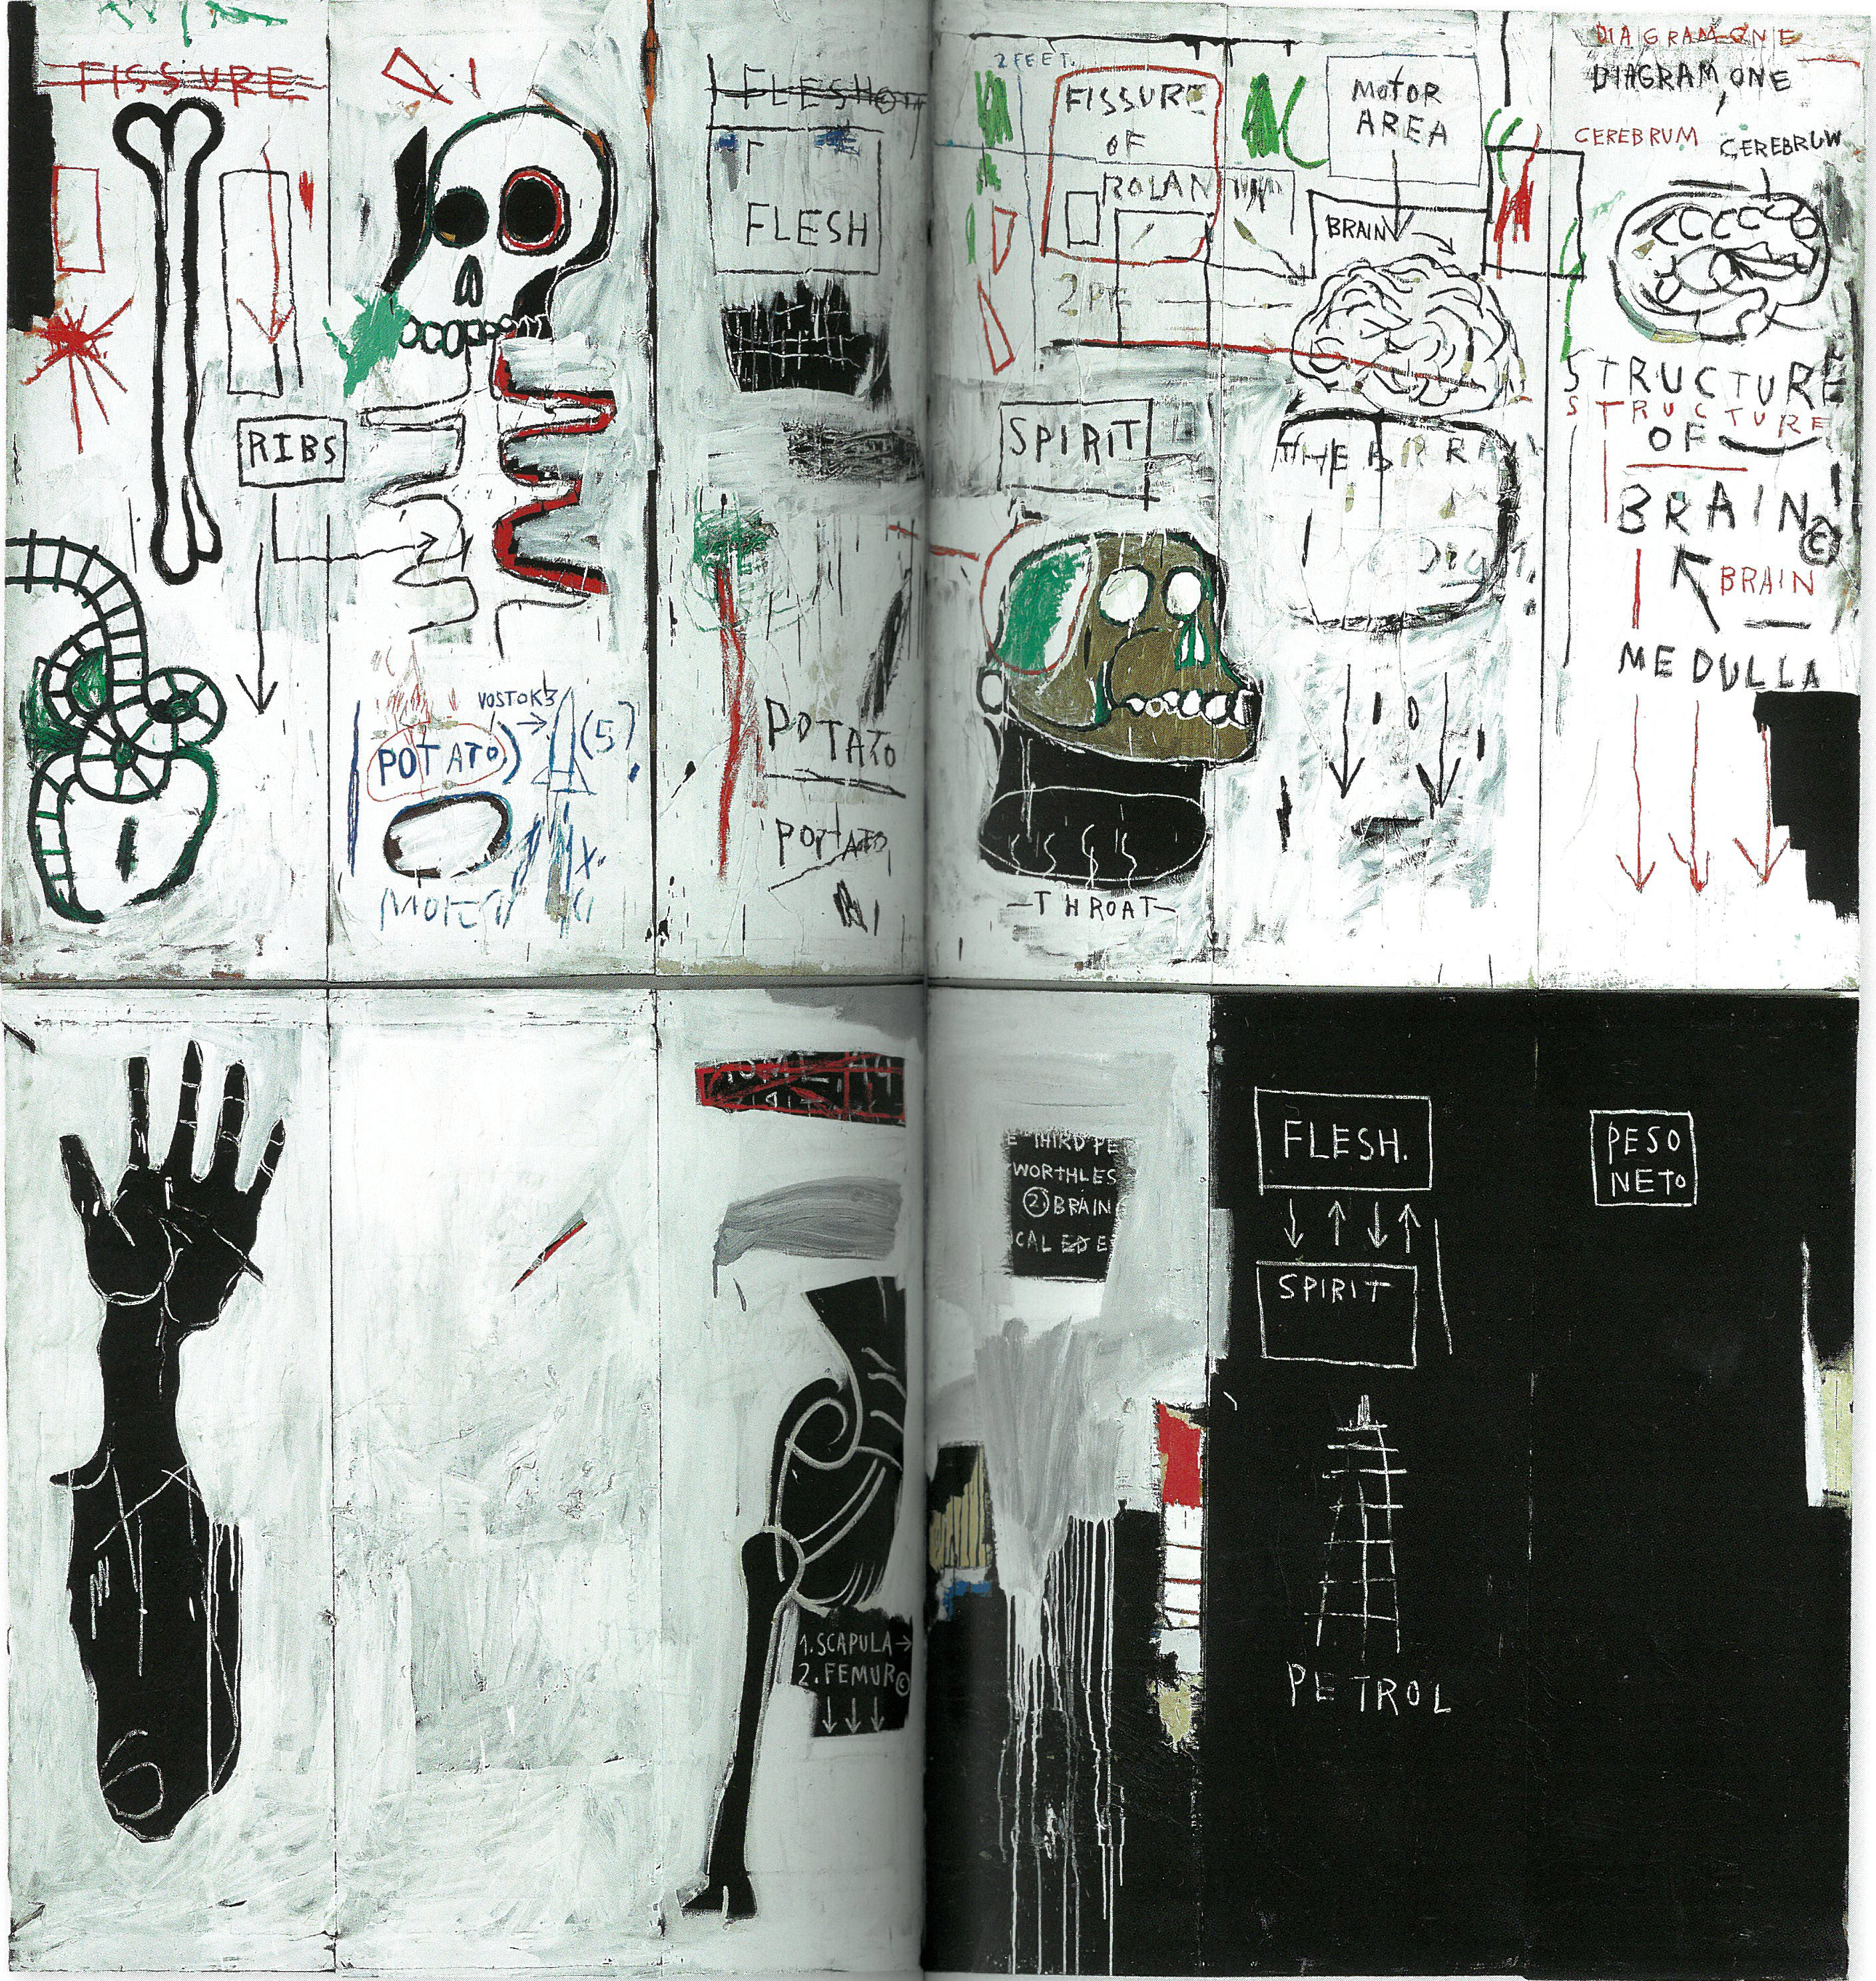 FISSURE
RIBS
VOSTOK3
POTATO
(5)
FLESH
F
FLESH
POTATO
POTATO
2 FEET.
FISSURE
OF
ROLAN
2PF
SPIRIT
THROAT
MOTOR
AREA
BRAIN
THE
DIAGRAM ONE
DIAGRAM, ONE
CEREBRUM
CEREBRUM
STRUCTURE
STRUCTURE
OF
BRAIN©
BRAIN
MEDULLA
1. SCAPULA→
2. FEMUR©
E THIRD PE
WORTHLES
② BRAIN
CAL
FLESH.
SPIRIT
PETROL
PESO
NETO